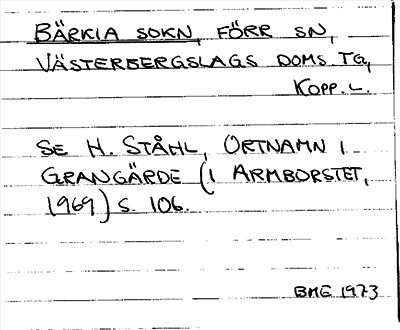 BÄRKIA SOKN, FÖRR SN,
VÄSTERBERGSLAGS DOMS. TG,
KOPP. L.
SE H. STÅHL, ORTNAMN I
GRANGÄRDE (I ARMBORSTET,
1969) S. 106.
BME 1973